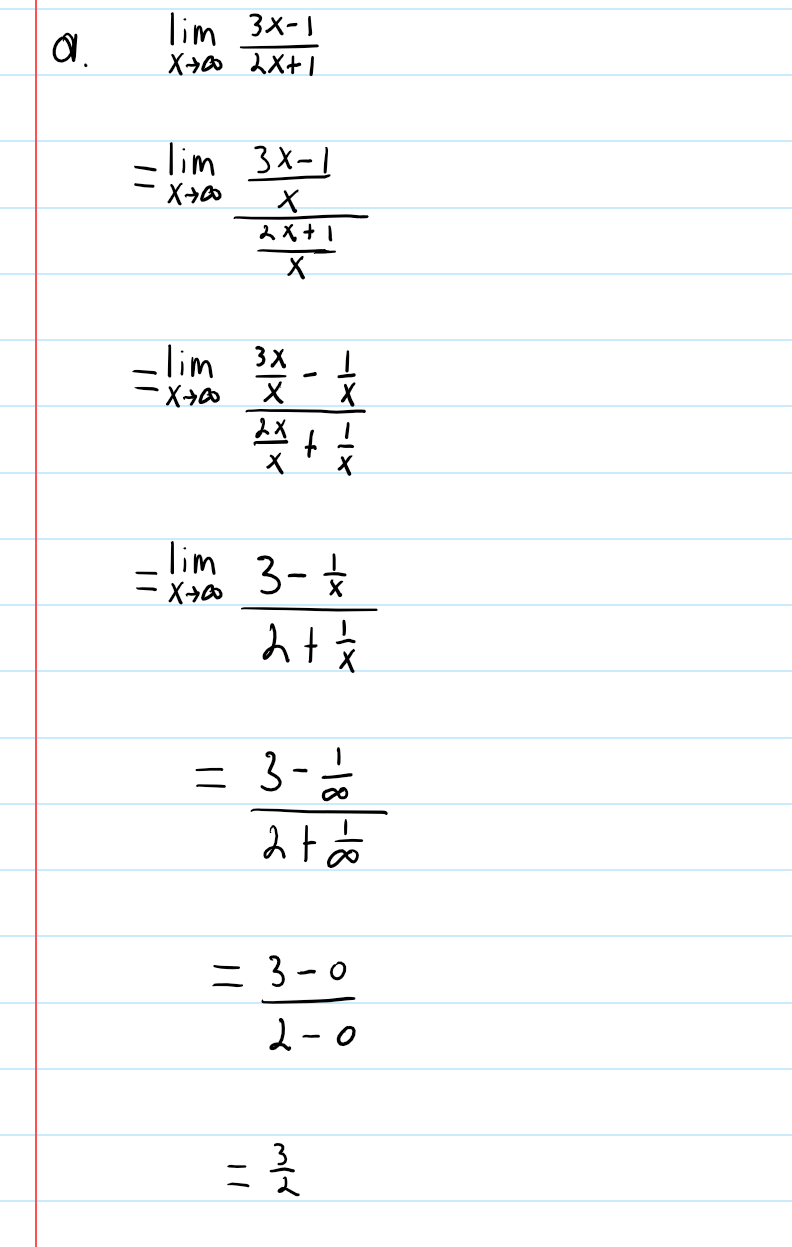 a. lim x→∞ (3x-1)/(2x+1)
= lim x→∞ ((3x-1)/x)/((2x+1)/x)
= lim x→∞ (3x/x - 1/x)/(2x/x + 1/x)
= lim x→∞ (3 - 1/x)/(2 + 1/x)
= (3 - 1/∞)/(2 + 1/∞)
= (3-0)/(2-0)
= 3/2